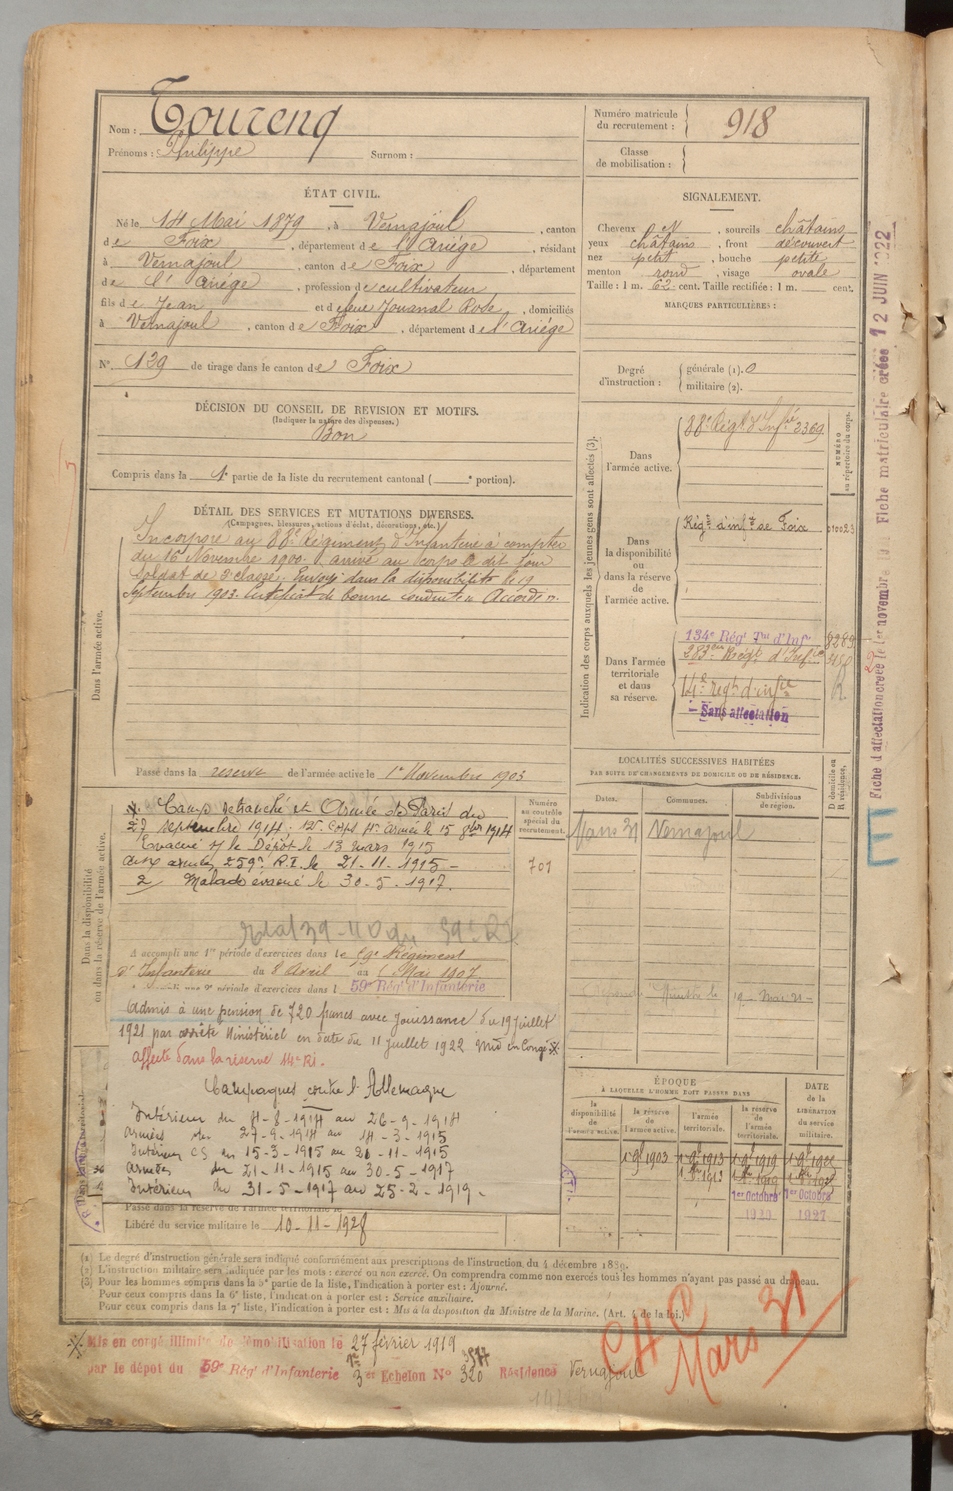 Nom : Tourenq
Prénoms : Philippe Surnom :
Numéro matricule du recrutement : 918
Classe de mobilisation :
ÉTAT CIVIL.
Né le 14 Mai 1879, à Vernajoul, canton
de Foix, département de l'Ariége, résidant
à Vernajoul, canton de Foix, département
de l'Ariége, profession de cultivateur
fils de Jean et de feue Journal Rose, domiciliés
à Vernajoul, canton de Foix, département de l'Ariége
N° 129 de tirage dans le canton de Foix
SIGNALEMENT.
Cheveux N, sourcils châtains
yeux châtains, front découvert
nez petit, bouche petite
menton rond, visage ovale
Taille : 1 m. 62 cent. Taille rectifiée : 1 m. cent.
MARQUES PARTICULIÈRES :
Degré d'instruction : générale (1). 0
militaire (2).
DÉCISION DU CONSEIL DE REVISION ET MOTIFS.
(Indiquer la nature des dispenses.)
Bon
Compris dans la 1e partie de la liste du recrutement cantonal ( e portion).
DÉTAIL DES SERVICES ET MUTATIONS DIVERSES.
(Campagnes, blessures, actions d'éclat, décorations, etc.)
Dans l'armée active.
Incorporé au 88e Régiment d'Infanterie à compter
du 16 Novembre 1900. arrivé au Corps le dit jour
Soldat de 2e classe. Envoyé dans la disponibilité le 19
Septembre 1903. Certificat de bonne conduite « Accordé ».
Passé dans la reserve de l'armée active le 1er Novembre 1903
Indication des corps auxquels les jeunes gens sont affectés (3).
NUMÉRO au répertoire du corps.
Dans l'armée active.
88e Régt d'Infie 2369
Dans la disponibilité ou dans la réserve de l'armée active.
Régt d'infie de Foix 01002
Dans l'armée territoriale et dans sa réserve.
134e Régt Tal d'Infie 8289
283e Régt d'Infie
14e regt d'infie
Sans affectation
LOCALITÉS SUCCESSIVES HABITÉES
PAR SUITE DE CHANGEMENTS DE DOMICILE OU DE RÉSIDENCE.
D domicile ou R résidence.
Dates. Communes. Subdivisions de région.
Mars 31 Vernajoul
Dans la disponibilité ou dans la réserve de l'armée active.
Numéro au contrôle spécial du recrutement.
701
Camp retranché et Armée de Paris du
27 septembre 1914. 12e Corps 4e Armée le 15 8bre 1914
Evacué s/ le Dépôt le 13 mars 1915
aux armées 259e R.I. le 21-11-1915 -
2/ Malade évacué le 30-5-1917.
A accompli une 1re période d'exercices dans le 59e Régiment
d'Infanterie du 8 Avril au 4 Mai 1907
une 2e période d'exercices dans l 59e Régt d'Infanterie
Admis à une pension de 720 francs avec jouissance du 19 juillet
1921 par arrêté Ministériel en date du 11 juillet 1922
affecté dans la réserve 14e RI.
Campagnes contre l'Allemagne
Intérieur du 4-8-1914 au 26-9-1914
Armées du 27-9-1914 au 14-3-1915
Intérieur CS du 15-3-1915 au 20-11-1915
Armées du 21-11-1915 au 30-5-1917
Intérieur du 31-5-1917 au 25-2-1919.
Passé dans la réserve de l'armée territoriale le
Libéré du service militaire le 10-11-1928
ÉPOQUE
À LAQUELLE L'HOMME DOIT PASSER DANS
DATE de la LIBÉRATION du service militaire.
la disponibilité de l'armée active.
la réserve de l'armée active.
l'armée territoriale.
la réserve de l'armée territoriale.
1er 9bre 1903 1er 9bre 1913 1er 9bre 1919
1er Octobre 1er Octobre
1920 1927
(1) Le degré d'instruction générale sera indiqué conformément aux prescriptions de l'instruction du 4 décembre 1889.
(2) L'instruction militaire sera indiquée par les mots : exercé ou non exercé. On comprendra comme non exercés tous les hommes n'ayant pas passé au drapeau.
(3) Pour les hommes compris dans la 5e partie de la liste, l'indication à porter est : Ajourné.
Pour ceux compris dans la 6e liste, l'indication à porter est : Service auxiliaire.
Pour ceux compris dans la 7e liste, l'indication à porter est : Mis à la disposition du Ministre de la Marine. (Art. 4 de la loi.)
Mis en congé illimité de démobilisation le 27 février 1919
par le dépôt du 59e Régt d'Infanterie 3e Echelon N° 320 Résidence Vernajoul
Mars 31
Fiche matriculaire créée 12 JUIN 1922
Fiche d'affectation créée le 1er novembre